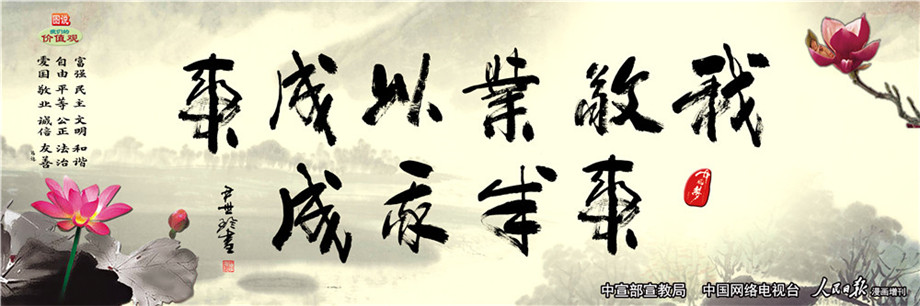 图说
我们的
价值观
富强 民主 文明 和谐
自由 平等 公正 法治
爱国 敬业 诚信 友善
我敬業以成事
事 亦成
中国梦
中宣部宣教局 中国网络电视台 人民日报 漫画增刊